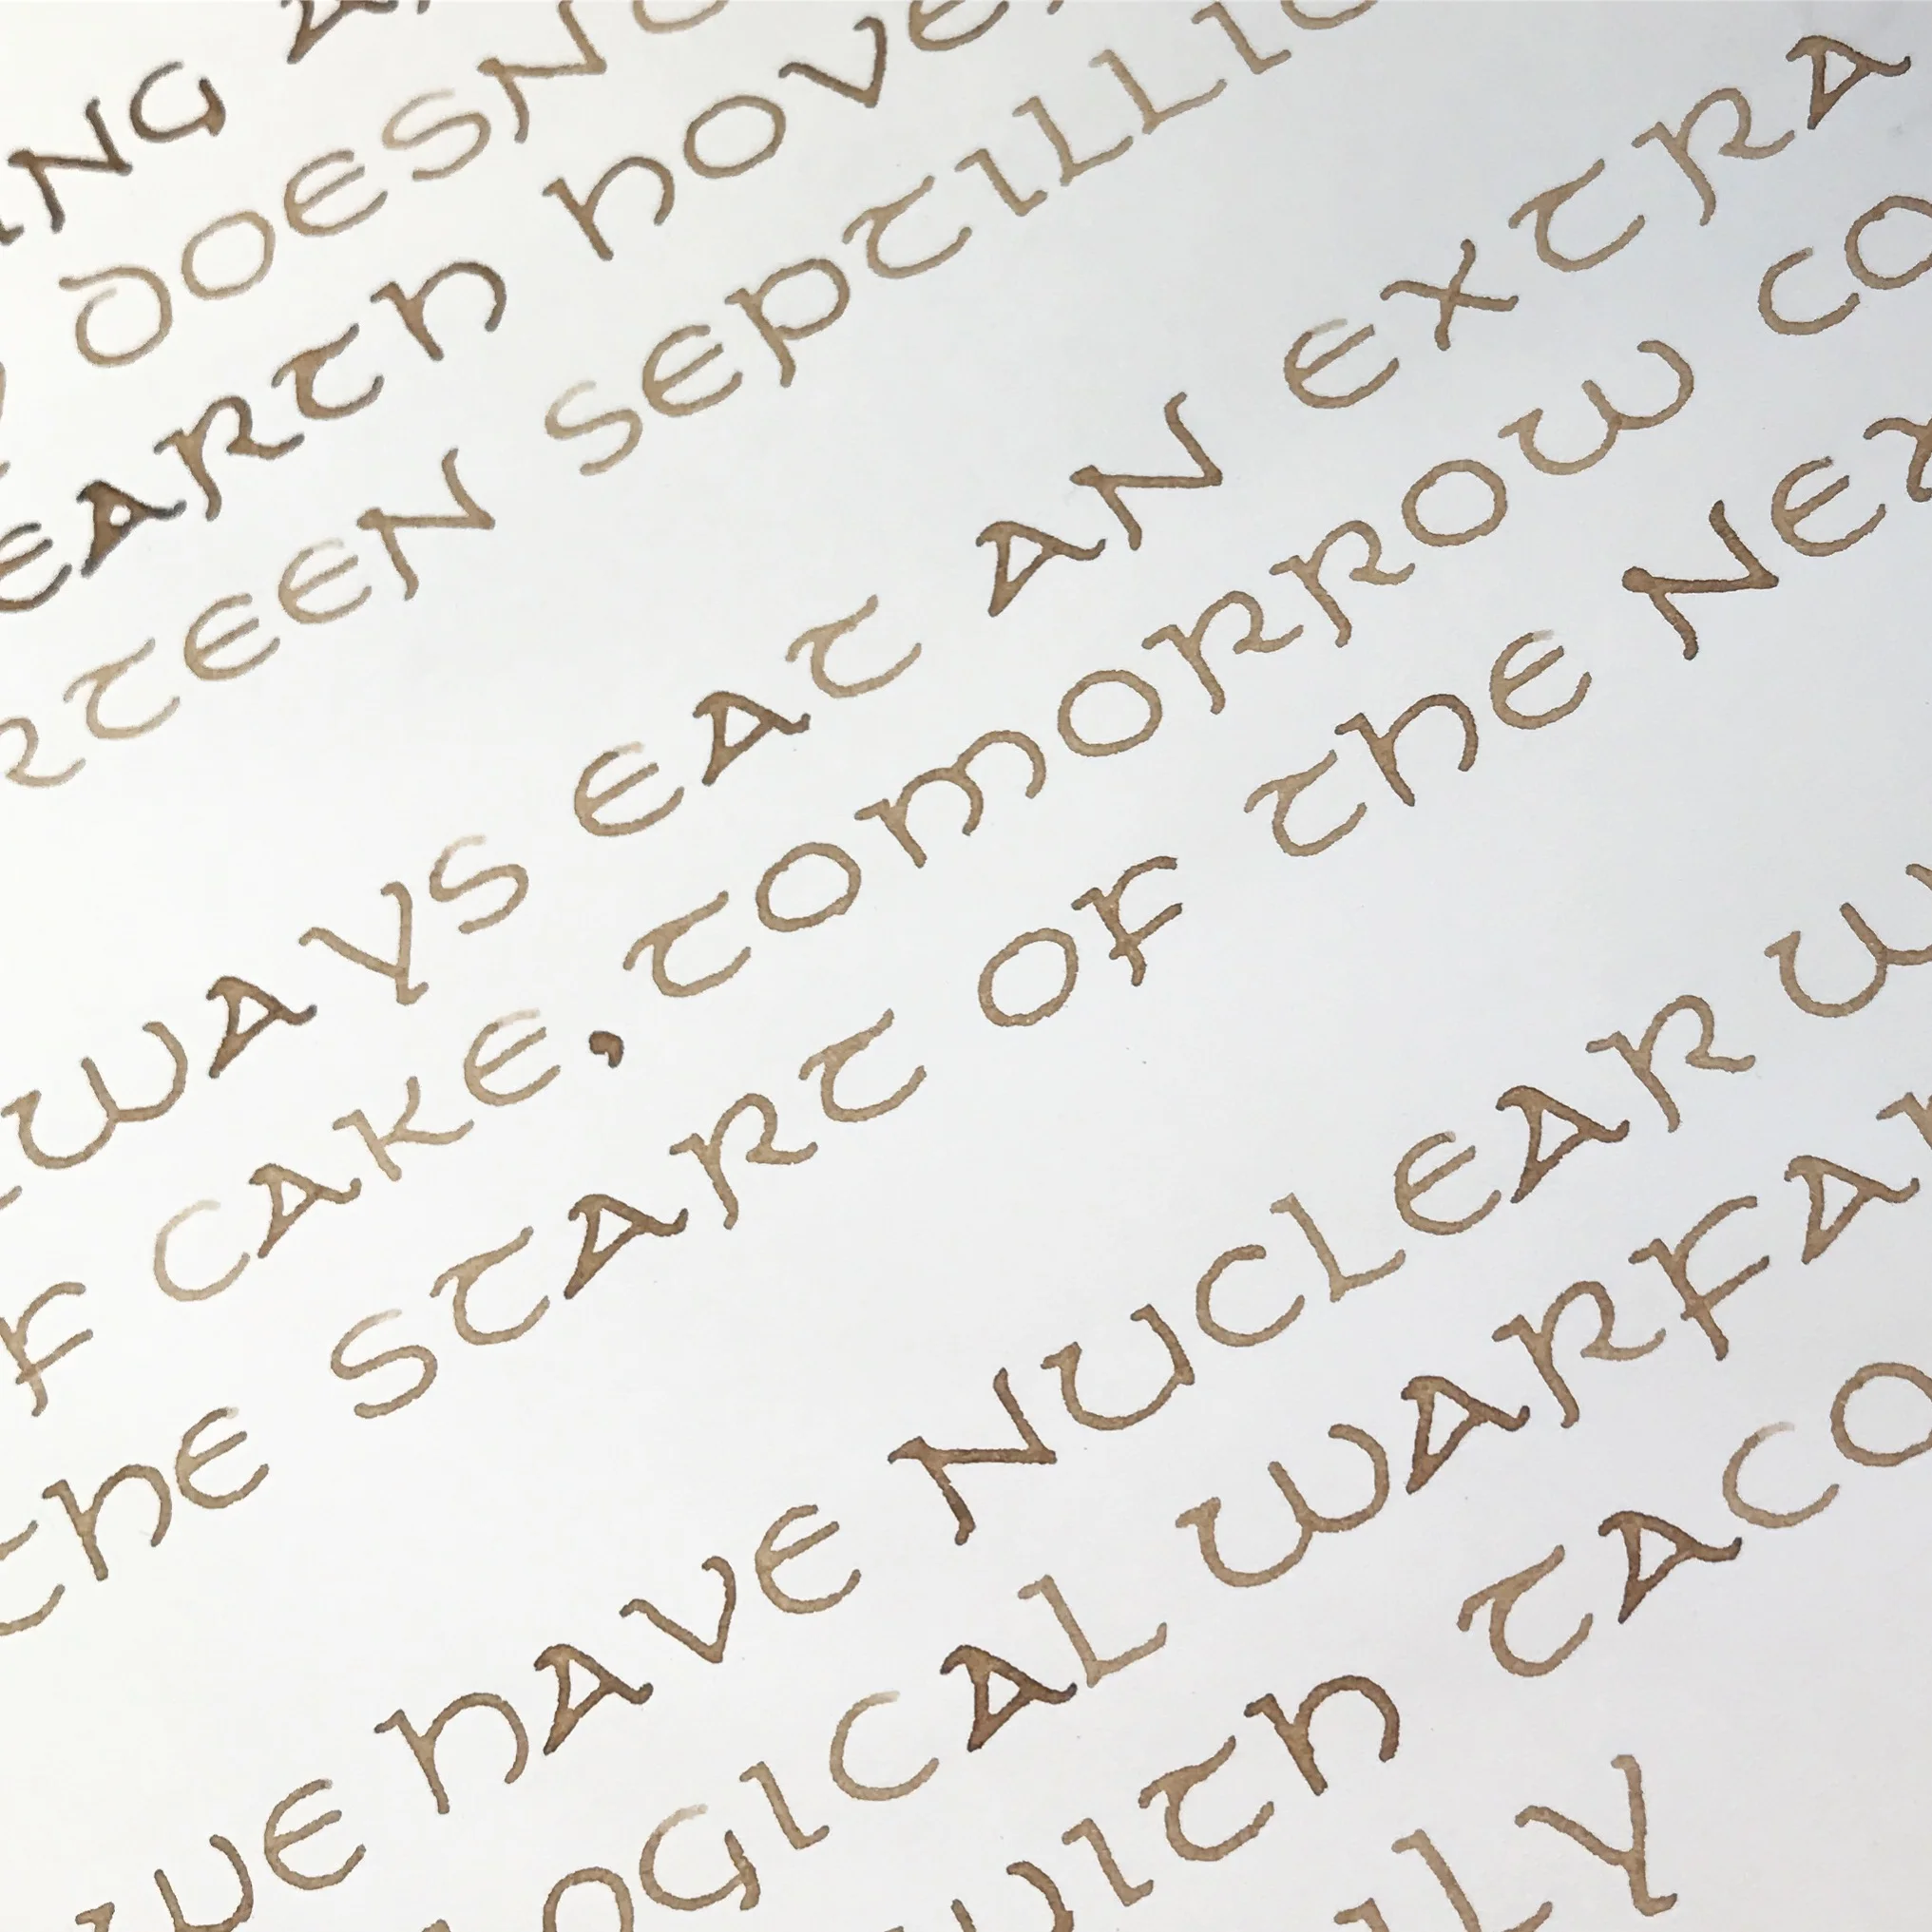 DOESN
EARTH HOVE
RTEEN SEPTILLIO
WAYS EAT AN EXTRA
F CAKE, TOMORROW CO
THE START OF THE NEX
WE HAVE NUCLEAR W
OGICAL WARFAR
WITH TACO
LLY